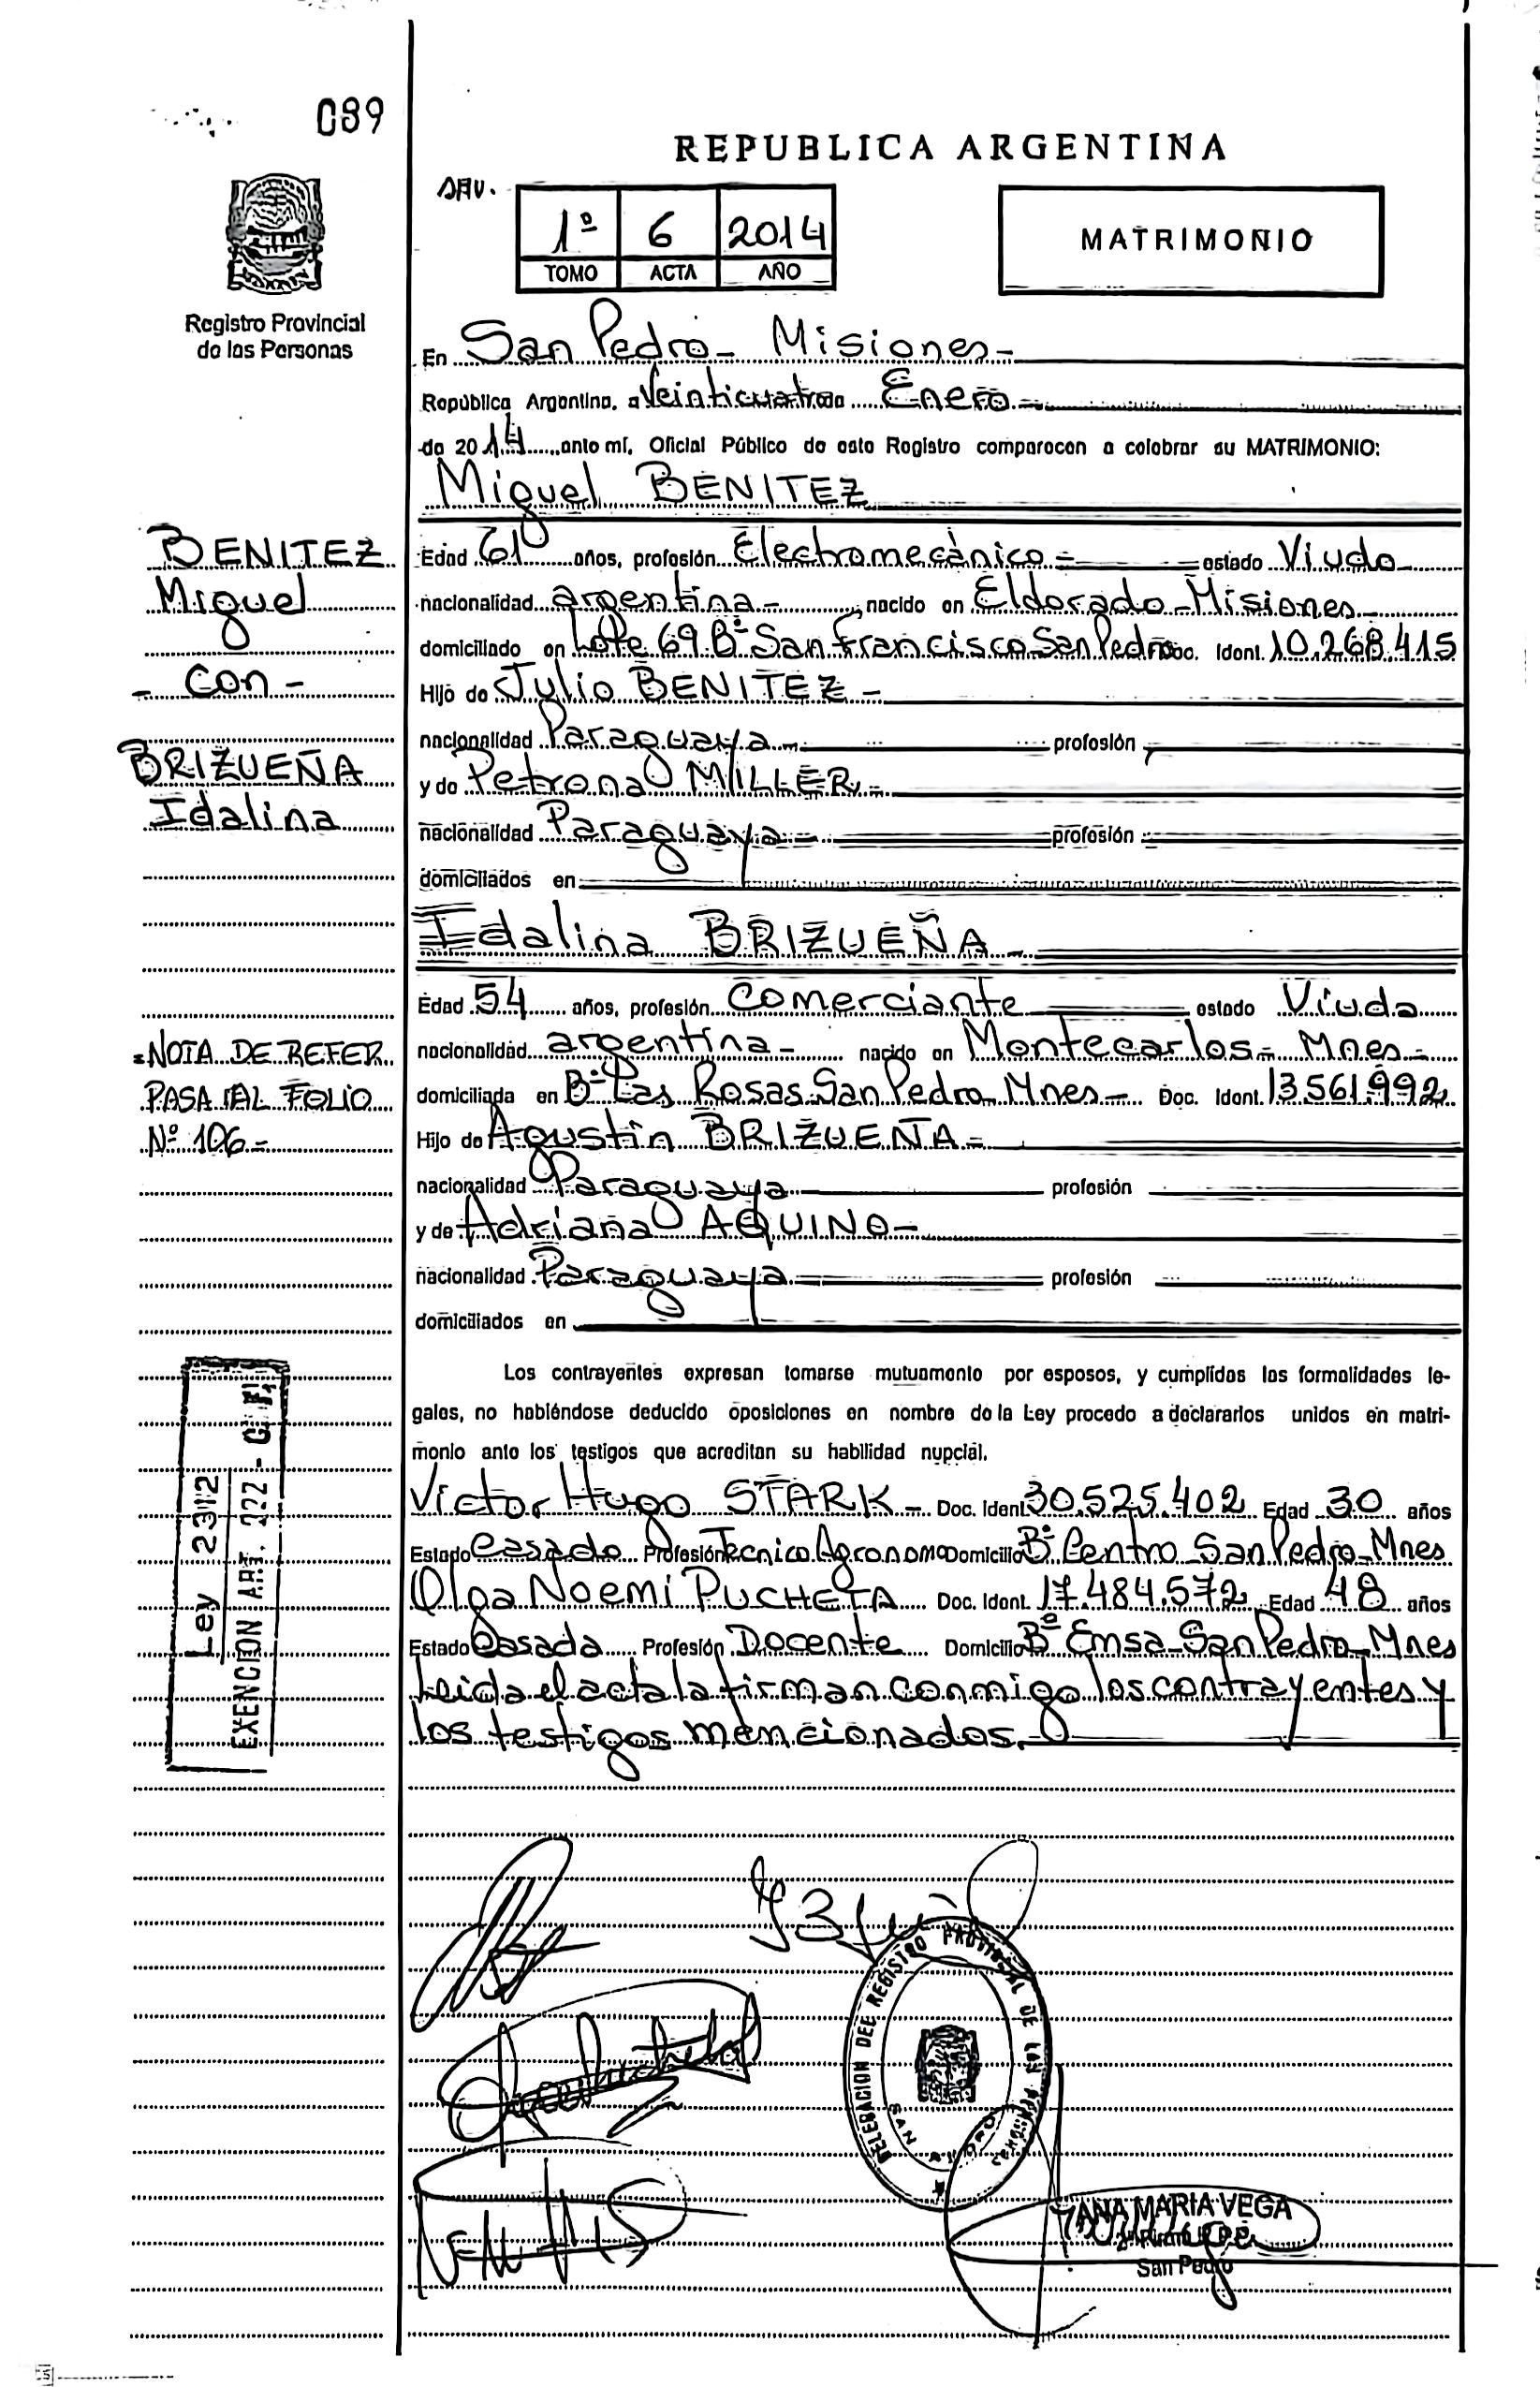 089
REPUBLICA ARGENTINA
1º 6 2014
TOMO ACTA AÑO
MATRIMONIO
Registro Provincial
de las Personas
En San Pedro - Misiones -
República Argentina, a Veinticuatro de Enero
de 2014 ante mí, Oficial Público de este Registro comparecen a celebrar su MATRIMONIO:
Miguel BENITEZ
BENITEZ
Miguel
- con -
BRIZUEÑA
Idalina
Edad 61 años, profesión Electromecánico estado Viudo
nacionalidad argentina - nacido en Eldorado - Misiones -
domiciliado en Lote 69 Bº San Francisco San Pedro Doc. Ident. 10.268.415
Hijo de Julio BENITEZ -
nacionalidad Paraguaya profesión
y de Petrona MILLER -
nacionalidad Paraguaya profesión
domiciliados en
Idalina BRIZUEÑA -
Edad 54 años, profesión Comerciante estado Viuda
nacionalidad argentina - nacido en Montecarlos - Mnes -
domiciliada en Bº Las Rosas San Pedro Mnes - Doc. Ident. 13.561.992
Hijo de Agustin BRIZUEÑA -
nacionalidad Paraguaya profesión
y de Adriana AQUINO -
nacionalidad Paraguaya profesión
domiciliados en
= NOTA DE REFER.
PASA AL FOLIO
Nº 106 -
Los contrayentes expresan tomarse mutuamente por esposos, y cumplidas las formalidades le-
gales, no habiéndose deducido oposiciones en nombre de la Ley procedo a declararlos unidos en matri-
monio ante los testigos que acreditan su habilidad nupcial.
Victor Hugo STARK - Doc. Ident. 30.525.402 Edad 30 años
Estado Casado Profesión Tecnico Agronomo Domicilio Bº Centro San Pedro - Mnes
Olga Noemi PUCHETA Doc. Ident. 17.484.572 Edad 48 años
Estado Casada Profesión Docente Domicilio Bº Emsa - San Pedro - Mnes
Leida el acta la firman conmigo los contrayentes y
los testigos mencionados.
Ley 2312
EXENCION ART. 222 - G.F.
DELEGACION DEL REGISTRO PROVINCIAL DE LAS PERSONAS
SAN PEDRO
ANA MARIA VEGA
San Pedro